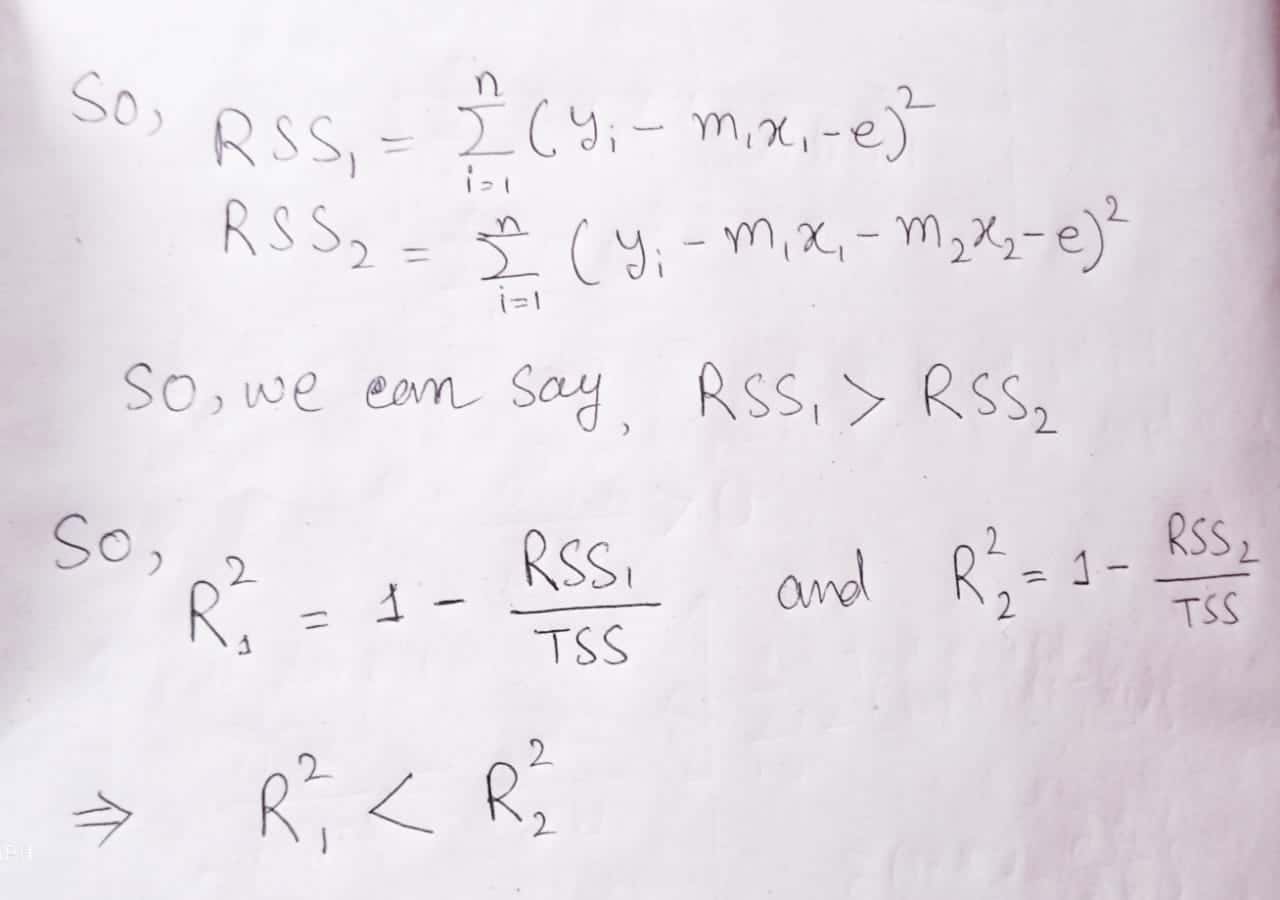 So, RSS₁ = ∑ᵢ₌₁ⁿ (yᵢ - m₁x₁ - c)²
RSS₂ = ∑ᵢ₌₁ⁿ (yᵢ - m₁x₁ - m₂x₂ - c)²
So, we can say, RSS₁ > RSS₂
So, R₁² = 1 - RSS₁/TSS and R₂² = 1 - RSS₂/TSS
⇒ R₁² < R₂²